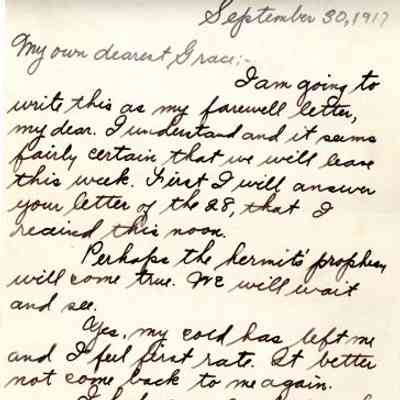 September 30, 1917
My own dearest Grace:-
I am going to
write this as my farewell letter,
my dear. I understand and it seems
fairly certain that we will leave
this week. First I will answer
your letter of the 28, that I
recived this noon.
Perhaps the hermits' prophesy
will come true. We will wait
and see.
Yes, my cold has left me
and I feel first rate. It better
not come back to me again.